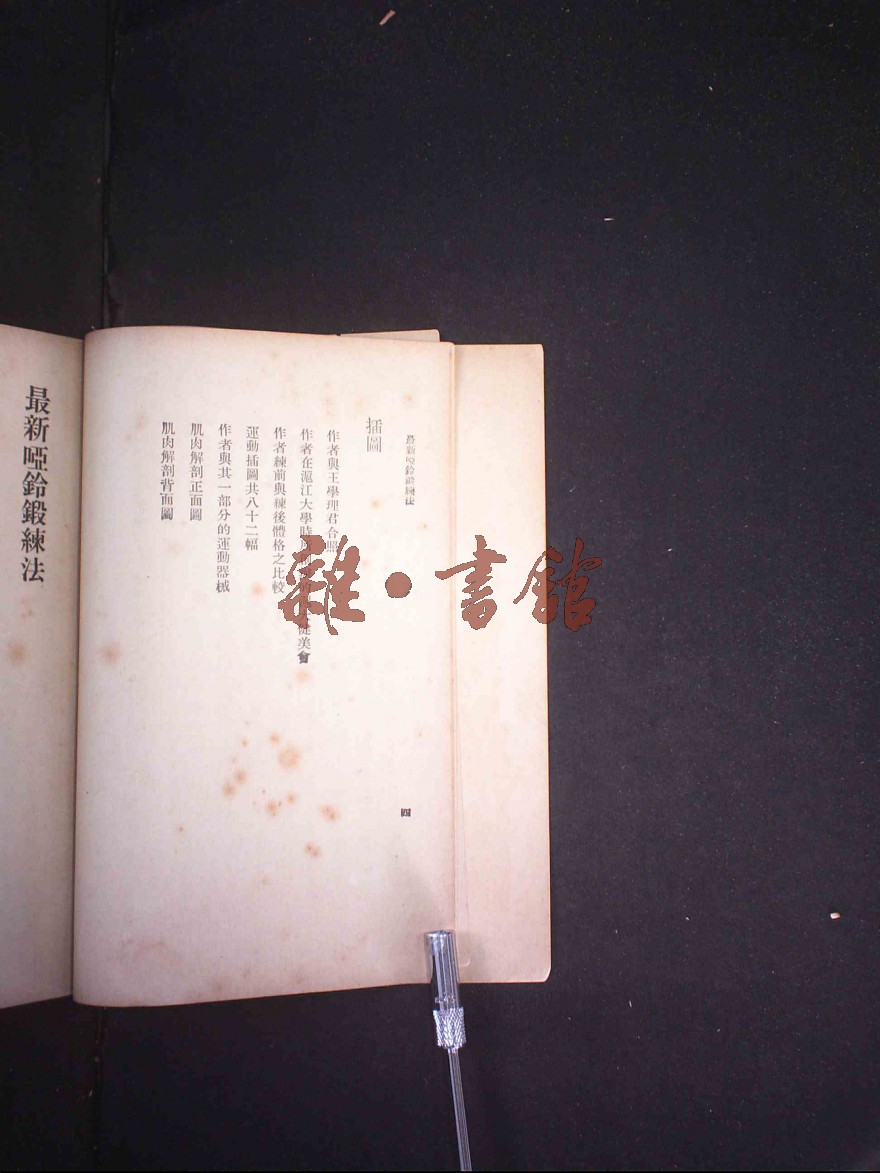 最新啞鈴鍛練法
四
插圖
作者與王學理君合照
作者在滬江大學時 健美會
作者練前與練後體格之比較
運動插圖共八十二幅
作者與其一部分的運動器械
肌肉解剖正面圖
肌肉解剖背面圖
最新啞鈴鍛練法
雜·書館